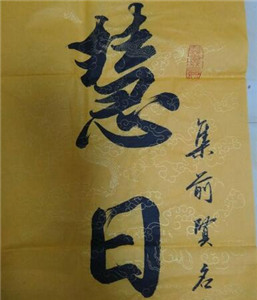 慧日
集前贤名